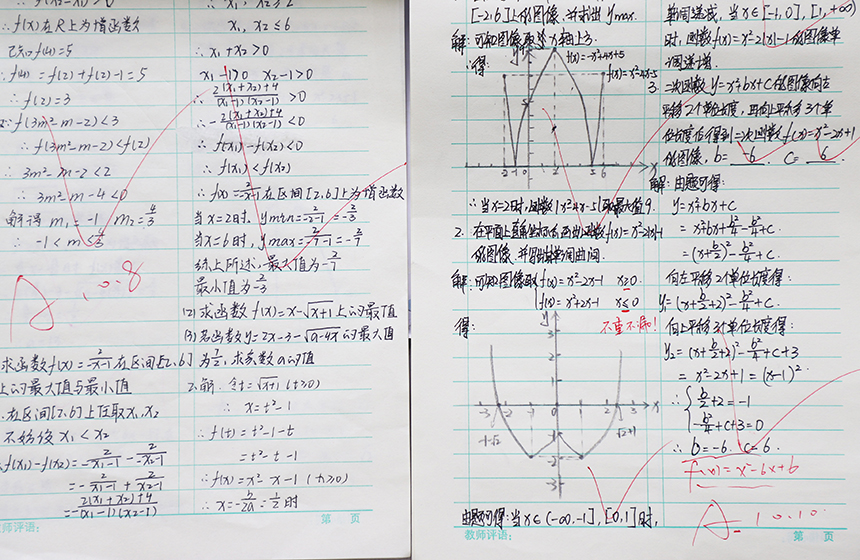 ∴ f(x)在R上为增函数
已知f(4)=5
∴ f(4)=f(2)+f(2)-1=5
∴ f(2)=3
f(3m²-m-2)<3
∴ f(3m²-m-2)<f(2)
∴ 3m²-m-2<2
∴ 3m²-m-4<0
解得 m₁=-1 m₂=4/3
∴ -1<m≤4/3
A 10.8
求函数f(x)=2/-x-1在区间[2,6]
上的最大值与最小值
在区间[2,6]上任取x₁,x₂
不妨设 x₁<x₂
f(x₁)-f(x₂)=2/-x₁-1 - 2/-x₂-1
=-2/x₁-1+2/x₂-1
=-2(x₁+x₂)+4/(x₁-1)(x₂-1)
教师评语:
x₁, x₂≤6
∴ x₁+x₂>0
x₁-1>0 x₂-1>0
∴ 2(x₁+x₂)+4/(x₁-1)(x₂-1)>0
∴ -2(x₁+x₂)+4/(x₁-1)(x₂-1)<0
∴ f(x₁)-f(x₂)<0
∴ f(x₁)<f(x₂)
∴ f(x)=2/-x-1在区间[2,6]上为增函数
当x=2时, ymin=2/-2-1=-2/3
当x=6时, ymax=2/-7-1=-2/7
综上所述, 最大值为-2/7
最小值为-2/3
(2)求函数f(x)=x-√x+1上的最值
(3)若函数y=2x-3-√a-4x的最大值
为7/2, 求实数a的值
2.解: 令t=√x+1 (t≥0)
∴ x=t²-1
∴ f(t)=t²-1-t
=t²-t-1
∴ f(x)=x²-x-1 (x≥0)
∴ x=-b/2a=1/2时
第 页
[-2,6]上的图像,并求出ymax.
解:可知图像取x轴上方.
得:
f(x)=-x²+4x+5
f(x)=x²-4x-5
5
-2 -1 0 1 2 5 6 x
∴当x=2时,函数|x²-4x-5|取最大值9.
2. 在平面上直角坐标系画出函数f(x)=x²-2|x|-1
的图像.并写出单调区间.
解:可知图像取{f(x)=x²-2x-1 x≥0.
f(x)=x²+2x-1 x≤0
不重不漏!
得:
y
3
2
1
-3 -2 -1 0 1 2 3 x
-1-√2
√2+1
-1
-2
-3
由题可得:当x∈(-∞,-1],[0,1]时,
教师评语:
单调递减,当x∈[-1,0],[1,+∞)
时,函数f(x)=x²-2|x|-1的图像单
调递增.
3. 二次函数y=x²+bx+c的图像向左
平移2个单位长度,再向上平移3个单
位长度后得到二次函数f(x)=x²-2x+1
的图像, b=-6 c=6.
解:由题可得:
y=x²+bx+c
=x²+bx+b²/4-b²/4+c.
=(x+b/2)²-b²/4+c.
向左平移2个单位长度得:
y₁=(x+b/2+2)²-b²/4+c.
向上平移3个单位长度得:
y₂=(x+b/2+2)²-b²/4+c+3
=x²-2x+1=(x-1)²
∴{b/2+2=-1
-b²/4+c+3=0
∴ b=-6. c=6.
f(x)=x²-6x+6
A- 10.10
第 页